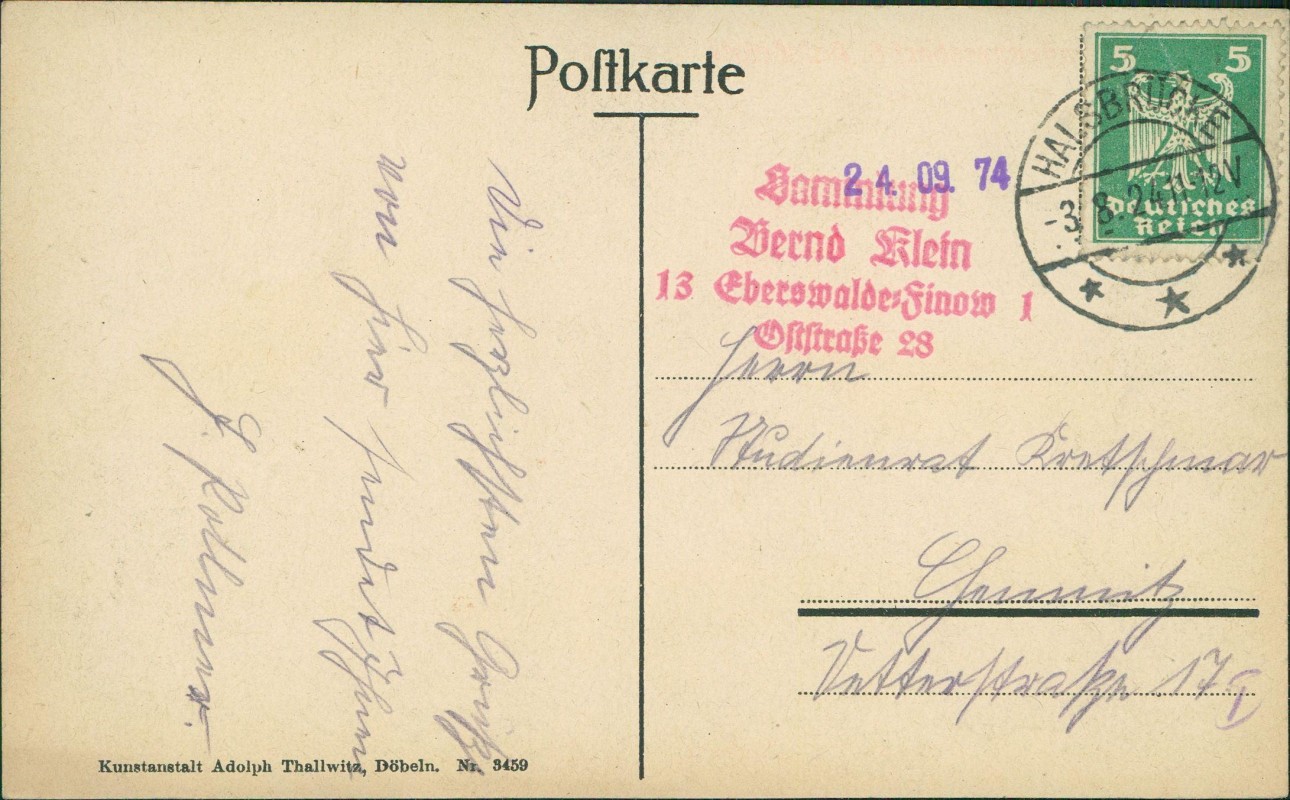 Postkarte
Die herzlichsten Grüße
von hier sendet Ihnen
Kunstanstalt Adolph Thallwitz, Döbeln. Nr. 3459
5 5
Deutsches
Reich
HALSBRÜCKE
-3.8.24.11-12V
24. 09. 74
Sammlung
Bernd Klein
13 Eberswalde-Finow 1
Oststraße 28
Herrn
Studienrat Kretschmar
Chemnitz
Vetterstraße 17 I